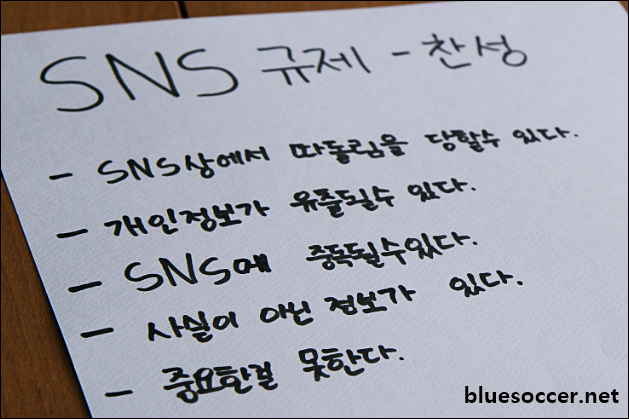 SNS 규제 - 찬성
- SNS상에서 따돌림을 당할수 있다.
- 개인정보가 유출될수 있다.
- SNS에 중독될수있다.
- 사실이 아닌 정보가 있다.
- 중요한걸 못한다.
bluesoccer.net